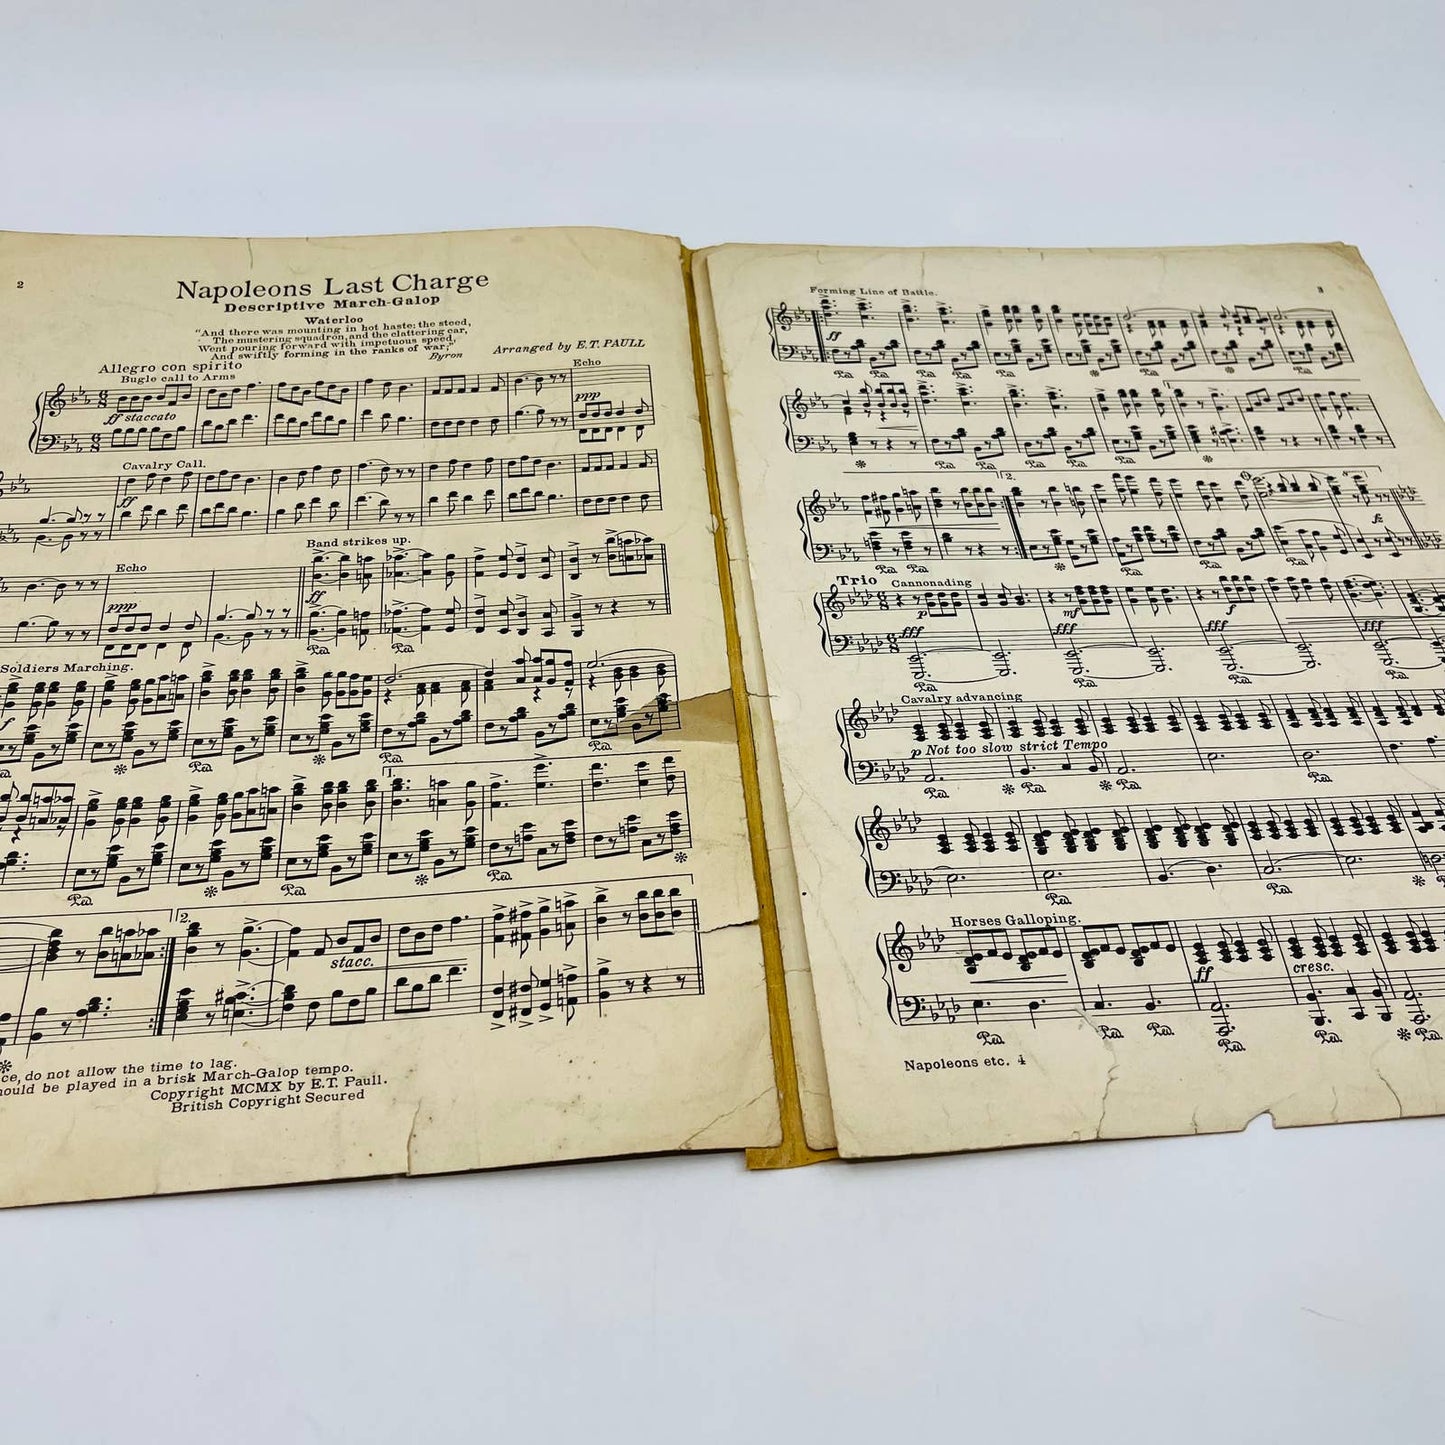 2
Napoleons Last Charge
Descriptive March-Galop
Waterloo
"And there was mounting in hot haste: the steed,
The mustering squadron, and the clattering car,
Went pouring forward with impetuous speed,
And swiftly forming in the ranks of war;"
Byron
Arranged by E.T. PAULL
Allegro con spirito
Bugle call to Arms
Echo
ff staccato
ppp
Cavalry Call.
ff
Echo
Band strikes up.
ppp
ff
Soldiers Marching.
1.
2.
stacc.
do not allow the time to lag.
be played in a brisk March-Galop tempo.
Copyright MCMX by E.T. Paull.
British Copyright Secured
Forming Line of Battle.
3
ff
1.
2.
fz
Trio Cannonading
p
mf
f
fff
fff
fff
fff
Cavalry advancing
p Not too slow strict Tempo
Horses Galloping.
ff
cresc.
Napoleons etc. 4